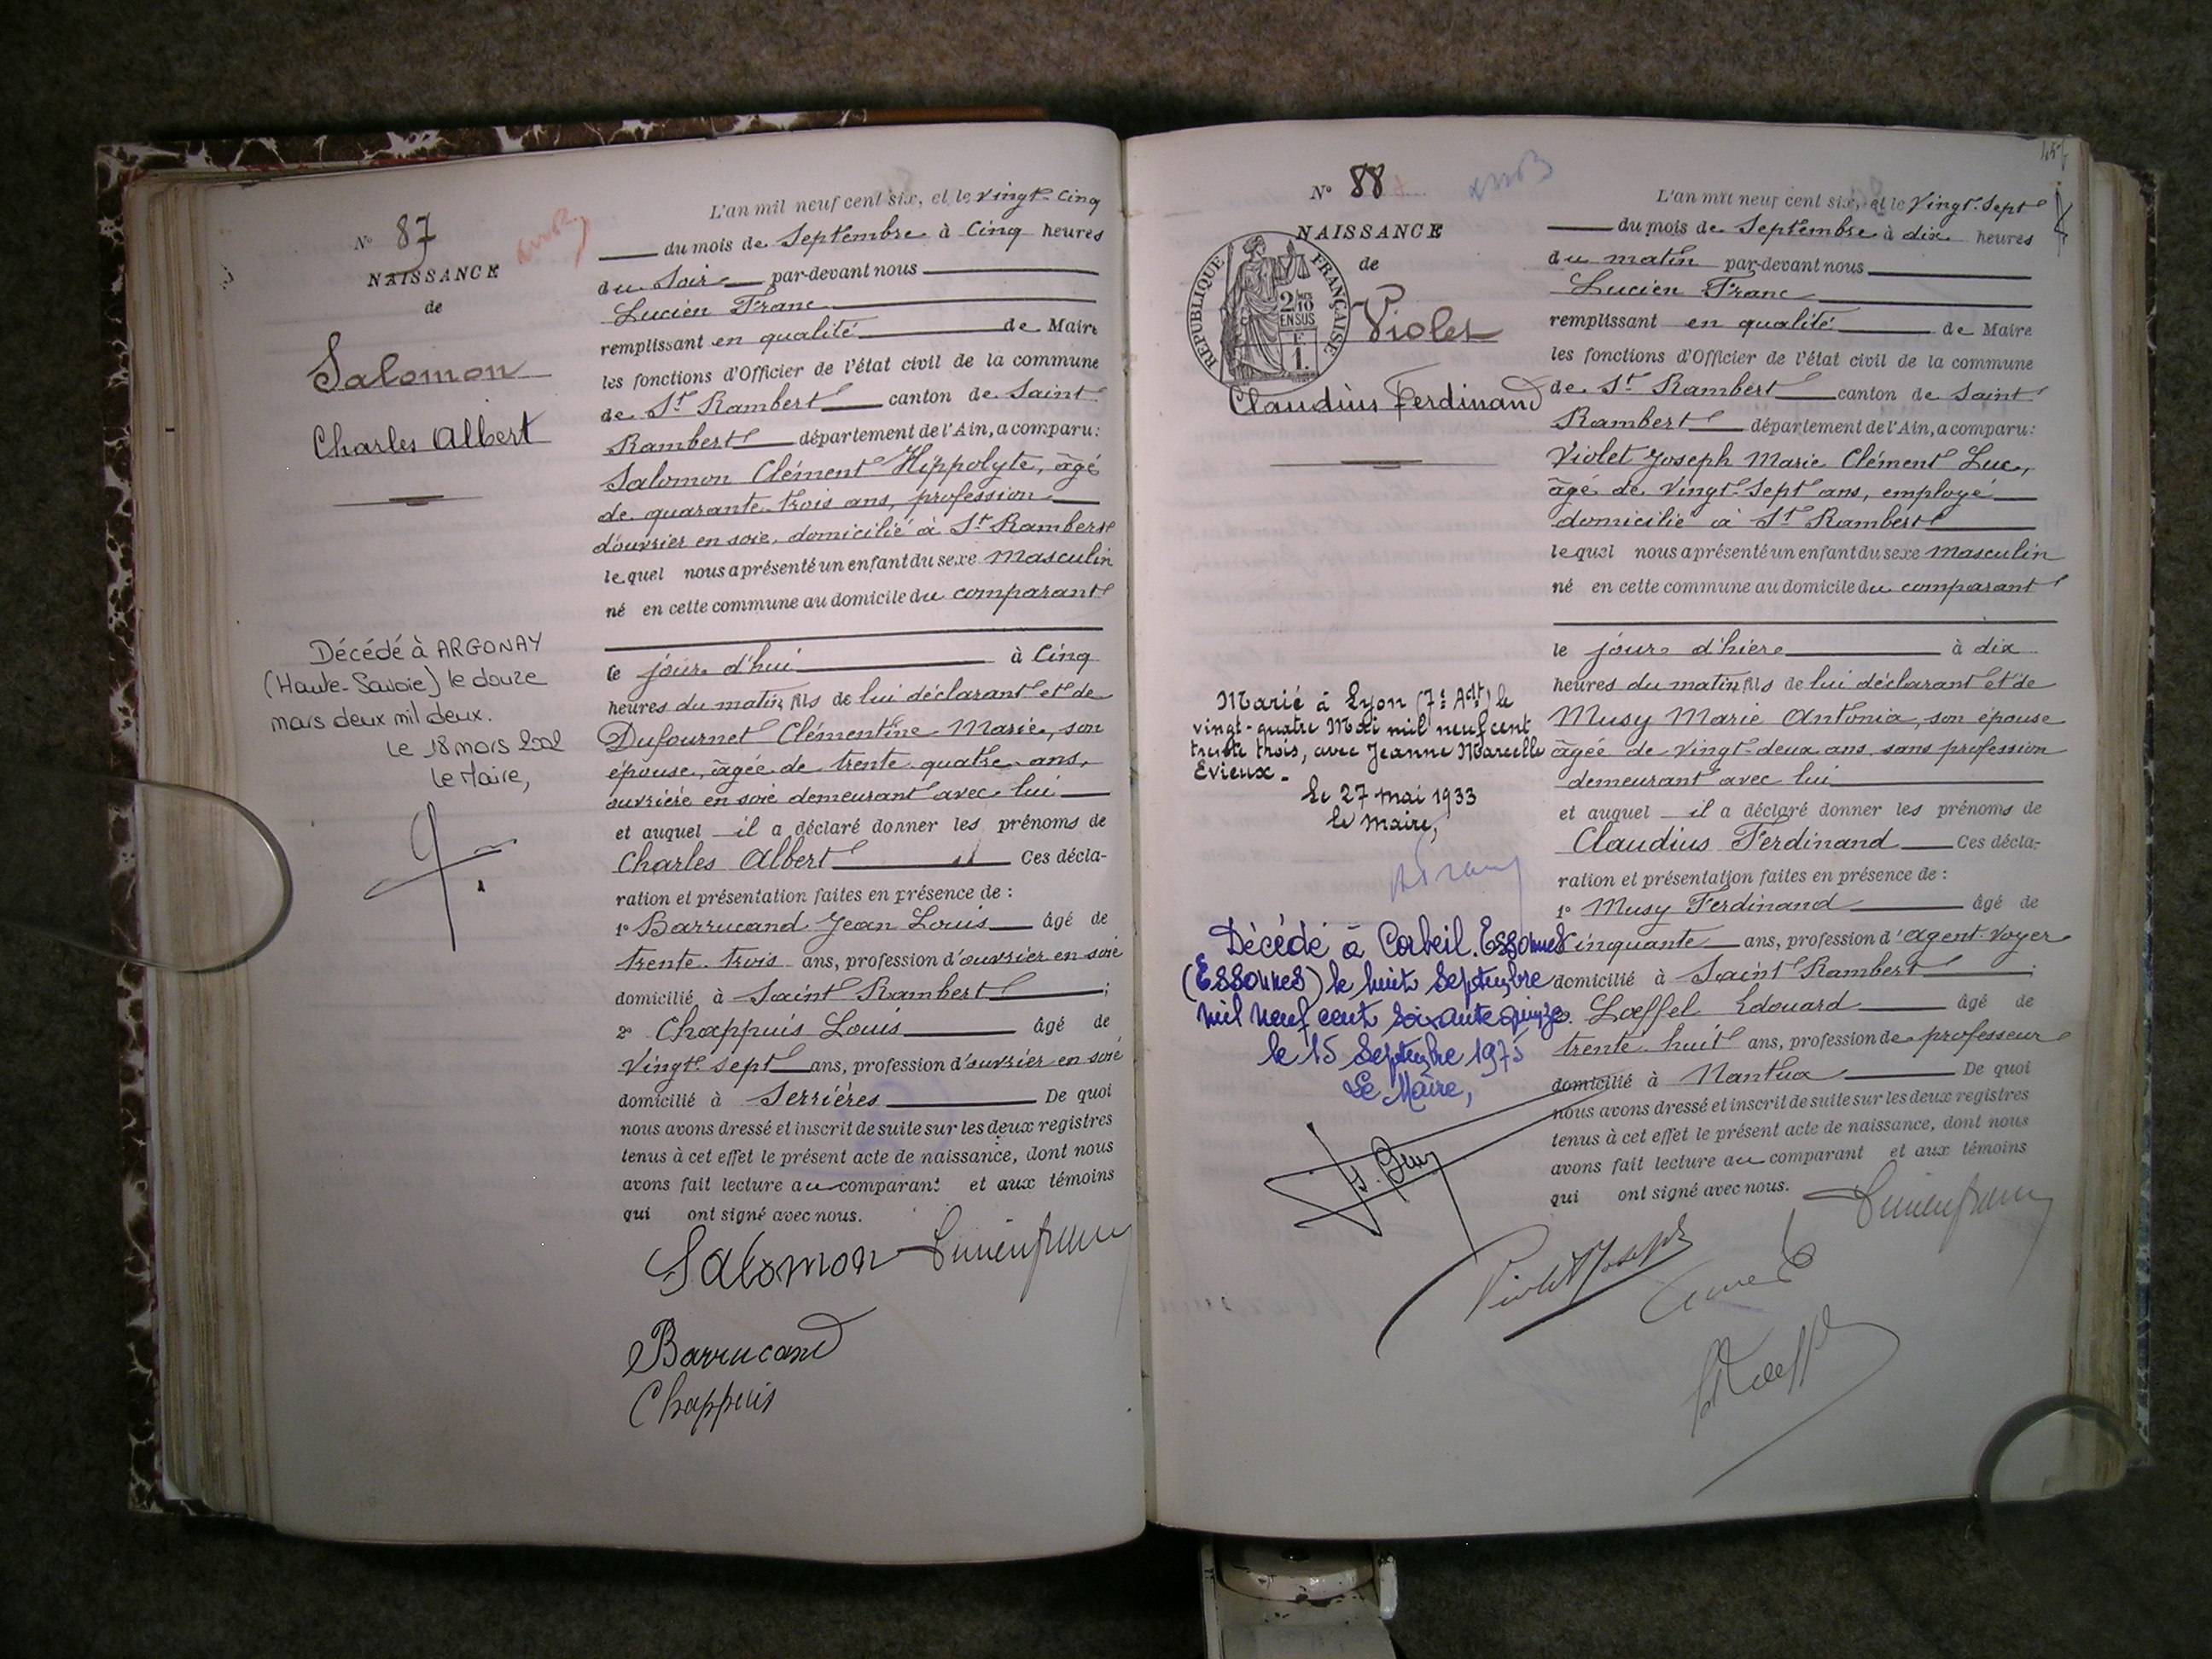 N° 87
NAISSANCE
de
Salomon
Charles Albert
Décédé à ARGONAY
(Haute-Savoie) le douze
mars deux mil deux.
Le 18 mars 2002
Le Maire,
L'an mil neuf cent six, et le vingt-cinq
du mois de Septembre à Cinq heures
du Soir par-devant nous
Lucien Franc
remplissant en qualité de Maire
les fonctions d'Officier de l'état civil de la commune
de St Rambert canton de Saint
Rambert département de l'Ain, a comparu:
Salomon Clément Hippolyte, âgé
de quarante-trois ans, profession
d'ouvrier en soie, domicilié à St Rambert
lequel nous a présenté un enfant du sexe masculin
né en cette commune au domicile du comparant
ce jour d'hui à Cinq
heures du matin, fils de lui déclarant et de
Dufournet Clémentine Marie, son
épouse, âgée de trente quatre ans,
ouvrière en soie demeurant avec lui
et auquel il a déclaré donner les prénoms de
Charles Albert Ces décla-
ration et présentation faites en présence de :
1° Barrucand Jean Louis âgé de
trente-trois ans, profession d'ouvrier en soie
domicilié à Saint Rambert ;
2° Chappuis Louis âgé de
Vingt-sept ans, profession d'ouvrier en soie
domicilié à Serrières De quoi
nous avons dressé et inscrit de suite sur les deux registres
tenus à cet effet le présent acte de naissance, dont nous
avons fait lecture au comparant et aux témoins
qui ont signé avec nous.
Salomon Lucien Franc
Barrucand
Chappuis
N° 88
NAISSANCE
de
REPUBLIQUE FRANÇAISE
2/10
EN SUS
F
1.
Violet
Claudius Ferdinand
Marié à Lyon (7e Adt) le
vingt-quatre Mai mil neuf cent
trente trois, avec Jeanne Marcelle
Evieux.
Le 27 mai 1933
le maire,
Décédé à Corbeil.Essonnes
(Essonnes) le huit Septembre
mil neuf cent soixante quinze.
le 15 Septembre 1975
Le Maire,
L'an mil neuf cent six, et le Vingt-Sept
du mois de Septembre à dix heures
du matin par-devant nous
Lucien Franc
remplissant en qualité de Maire
les fonctions d'Officier de l'état civil de la commune
de St Rambert canton de Saint
Rambert département de l'Ain, a comparu:
Violet Joseph Marie Clément Luc,
âgé de Vingt-Sept ans, employé
domicilié à St Rambert
lequel nous a présenté un enfant du sexe masculin
né en cette commune au domicile du comparant
le jour d'hier à dix
heures du matin, fils de lui déclarant et de
Musy Marie Antonia, son épouse
âgée de vingt-deux ans, sans profession
demeurant avec lui
et auquel il a déclaré donner les prénoms de
Claudius Ferdinand Ces décla-
ration et présentation faites en présence de :
1° Musy Ferdinand âgé de
Cinquante ans, profession d'agent-voyer
domicilié à Saint Rambert ;
Loeffel Edouard âgé de
trente-huit ans, profession de professeur
domicilié à Nantua De quoi
nous avons dressé et inscrit de suite sur les deux registres
tenus à cet effet le présent acte de naissance, dont nous
avons fait lecture au comparant et aux témoins
qui ont signé avec nous.
Lucien Franc
Violet Joseph